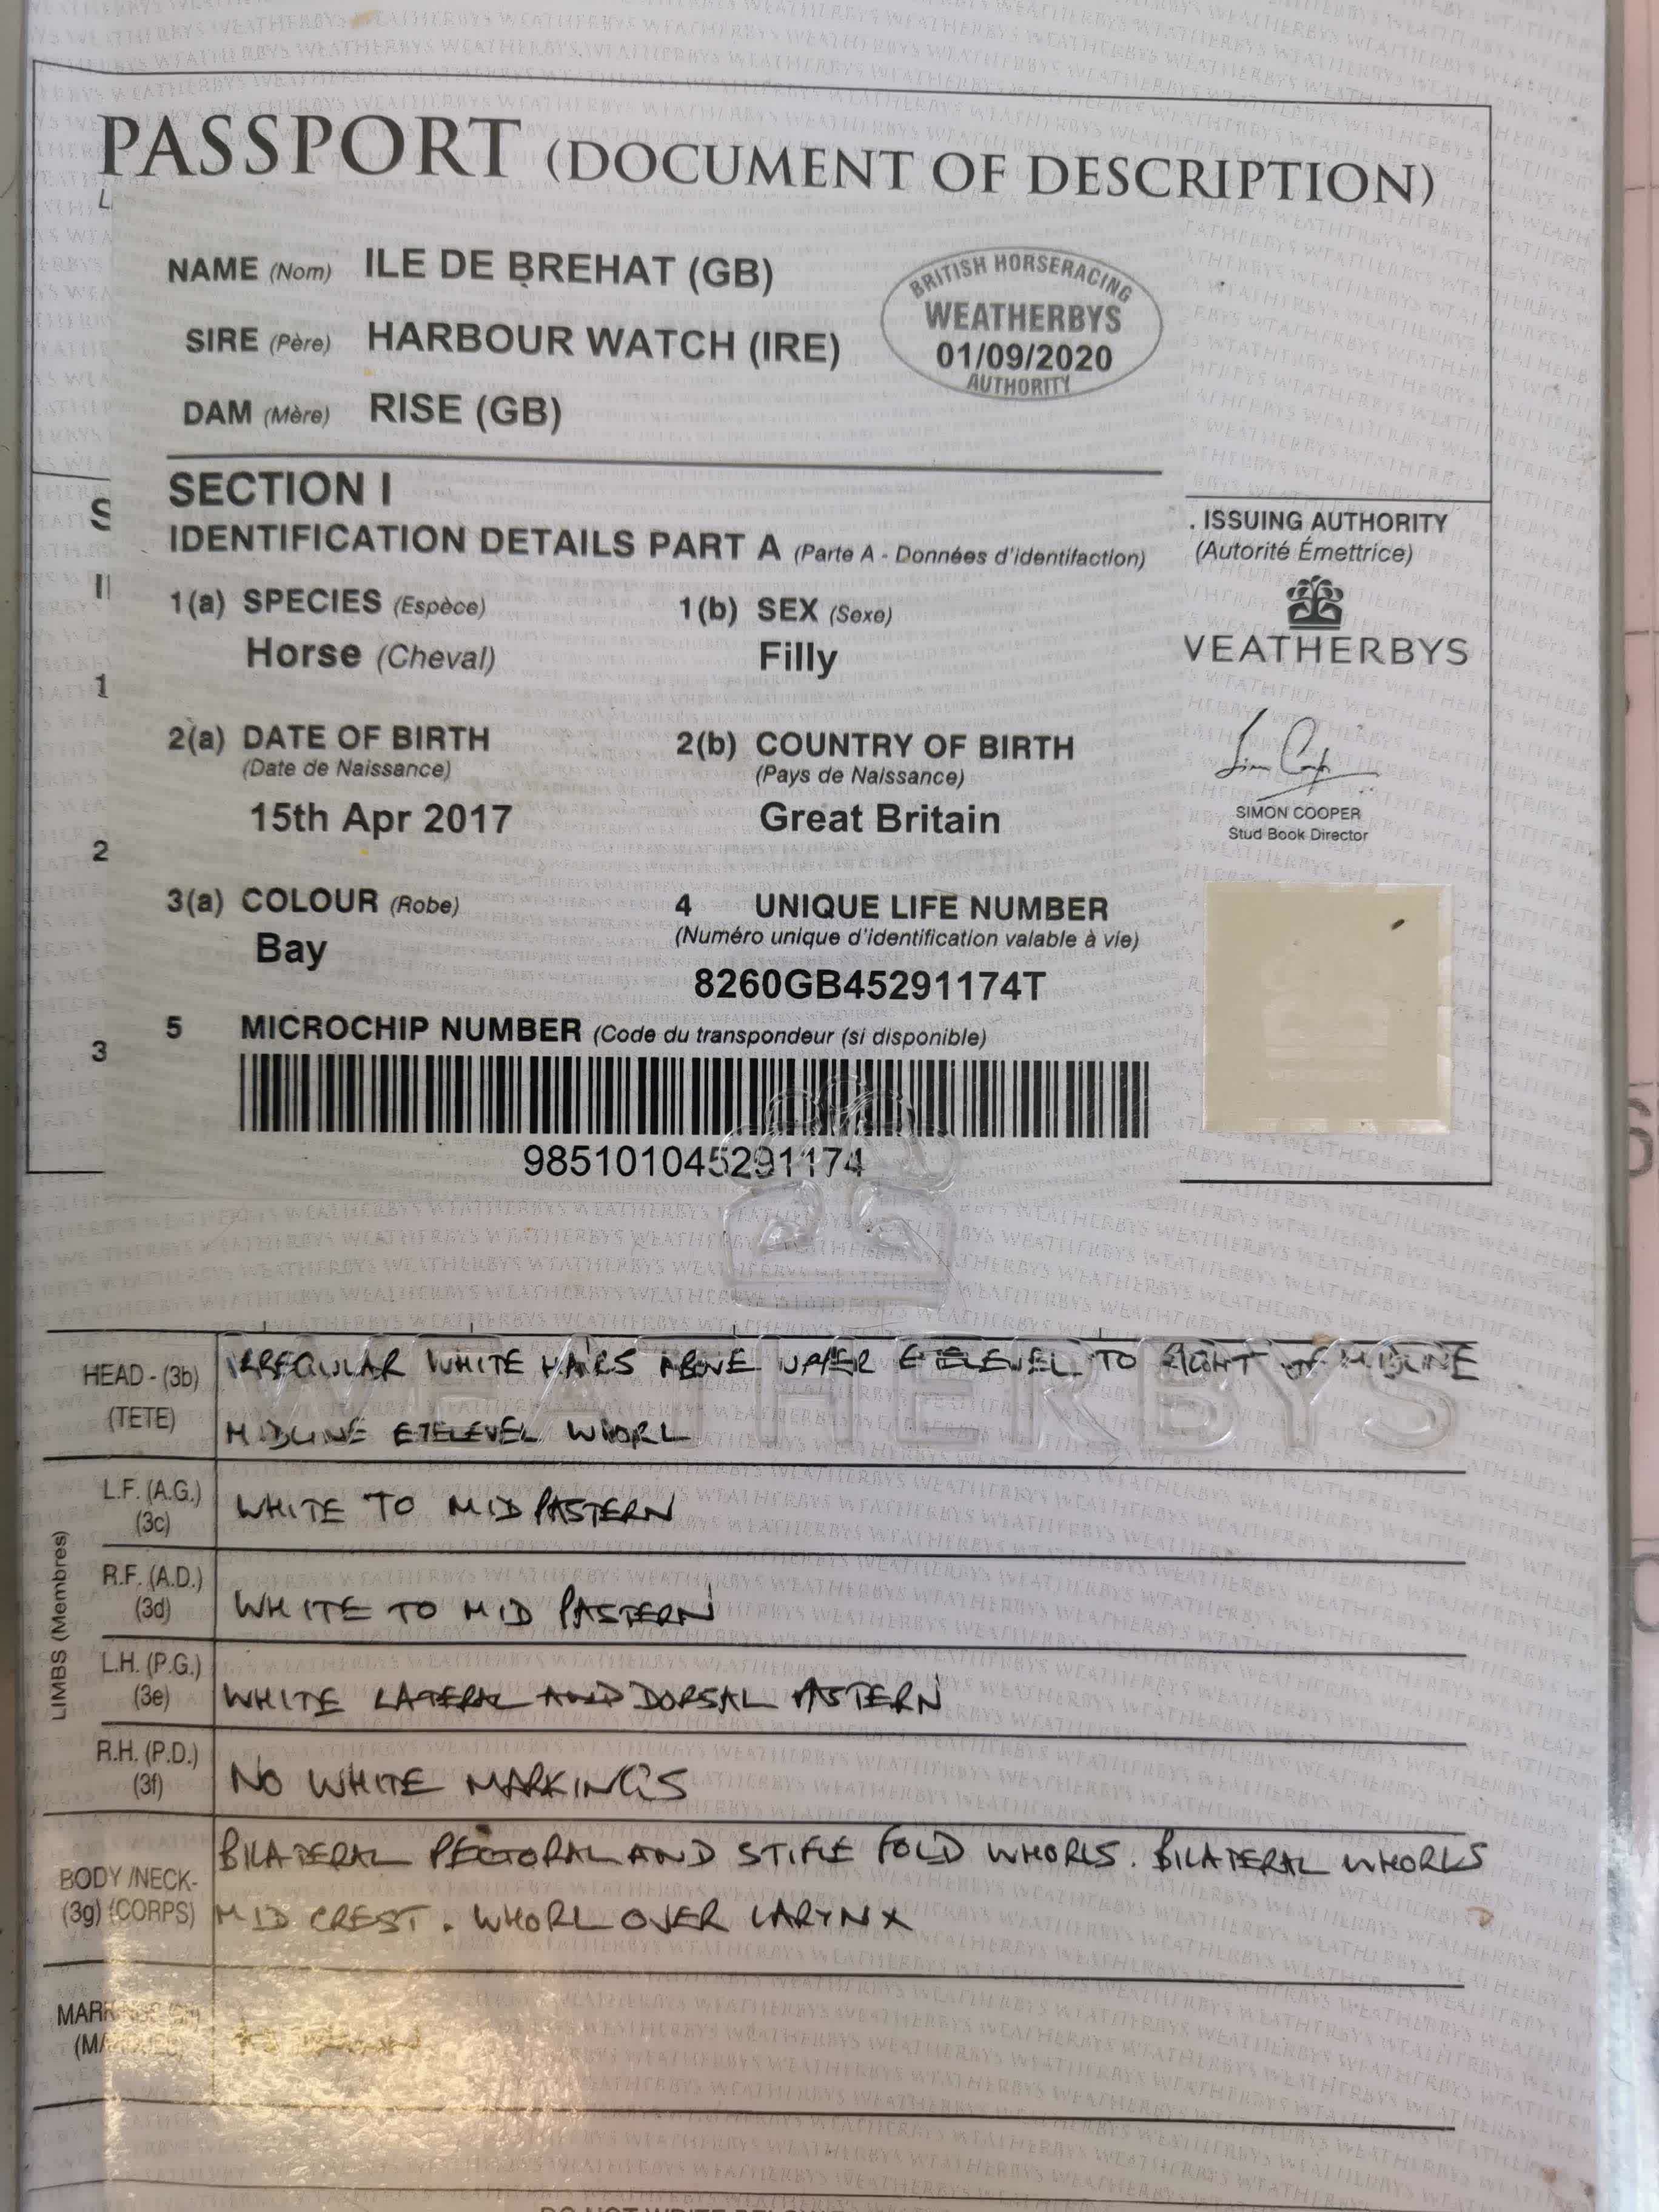 PASSPORT (DOCUMENT OF DESCRIPTION)
L
NAME (Nom) ILE DE BREHAT (GB)
SIRE (Père) HARBOUR WATCH (IRE)
DAM (Mère) RISE (GB)
BRITISH HORSERACING
WEATHERBYS
01/09/2020
AUTHORITY
S
SECTION I
IDENTIFICATION DETAILS PART A (Parte A - Données d'identifaction)
. ISSUING AUTHORITY
(Autorité Émettrice)
VEATHERBYS
1(a) SPECIES (Espèce)
Horse (Cheval)
1(b) SEX (Sexe)
Filly
1
2(a) DATE OF BIRTH
(Date de Naissance)
15th Apr 2017
2(b) COUNTRY OF BIRTH
(Pays de Naissance)
Great Britain
SIMON COOPER
Stud Book Director
2
3(a) COLOUR (Robe)
Bay
4 UNIQUE LIFE NUMBER
(Numéro unique d'identification valable à vie)
8260GB45291174T
3
5 MICROCHIP NUMBER (Code du transpondeur (si disponible)
985101045291174
WEATHERBYS
HEAD - (3b)
(TETE)
IRREGULAR WHITE HAIRS ABOVE UPPER EYELEVEL TO RIGHT OF MIDLINE
MIDLINE EYELEVEL WHORL
LIMBS (Membres)
L.F. (A.G.)
(3c)
WHITE TO MID PASTERN
R.F. (A.D.)
(3d)
WHITE TO MID PASTERN
L.H. (P.G.)
(3e)
WHITE LATERAL AND DORSAL PASTERN
R.H. (P.D.)
(3f)
NO WHITE MARKINGS
BODY /NECK-
(3g) (CORPS)
BILATERAL PECTORAL AND STIFLE FOLD WHORLS. BILATERAL WHORLS
MID CREST. WHORL OVER LARYNX